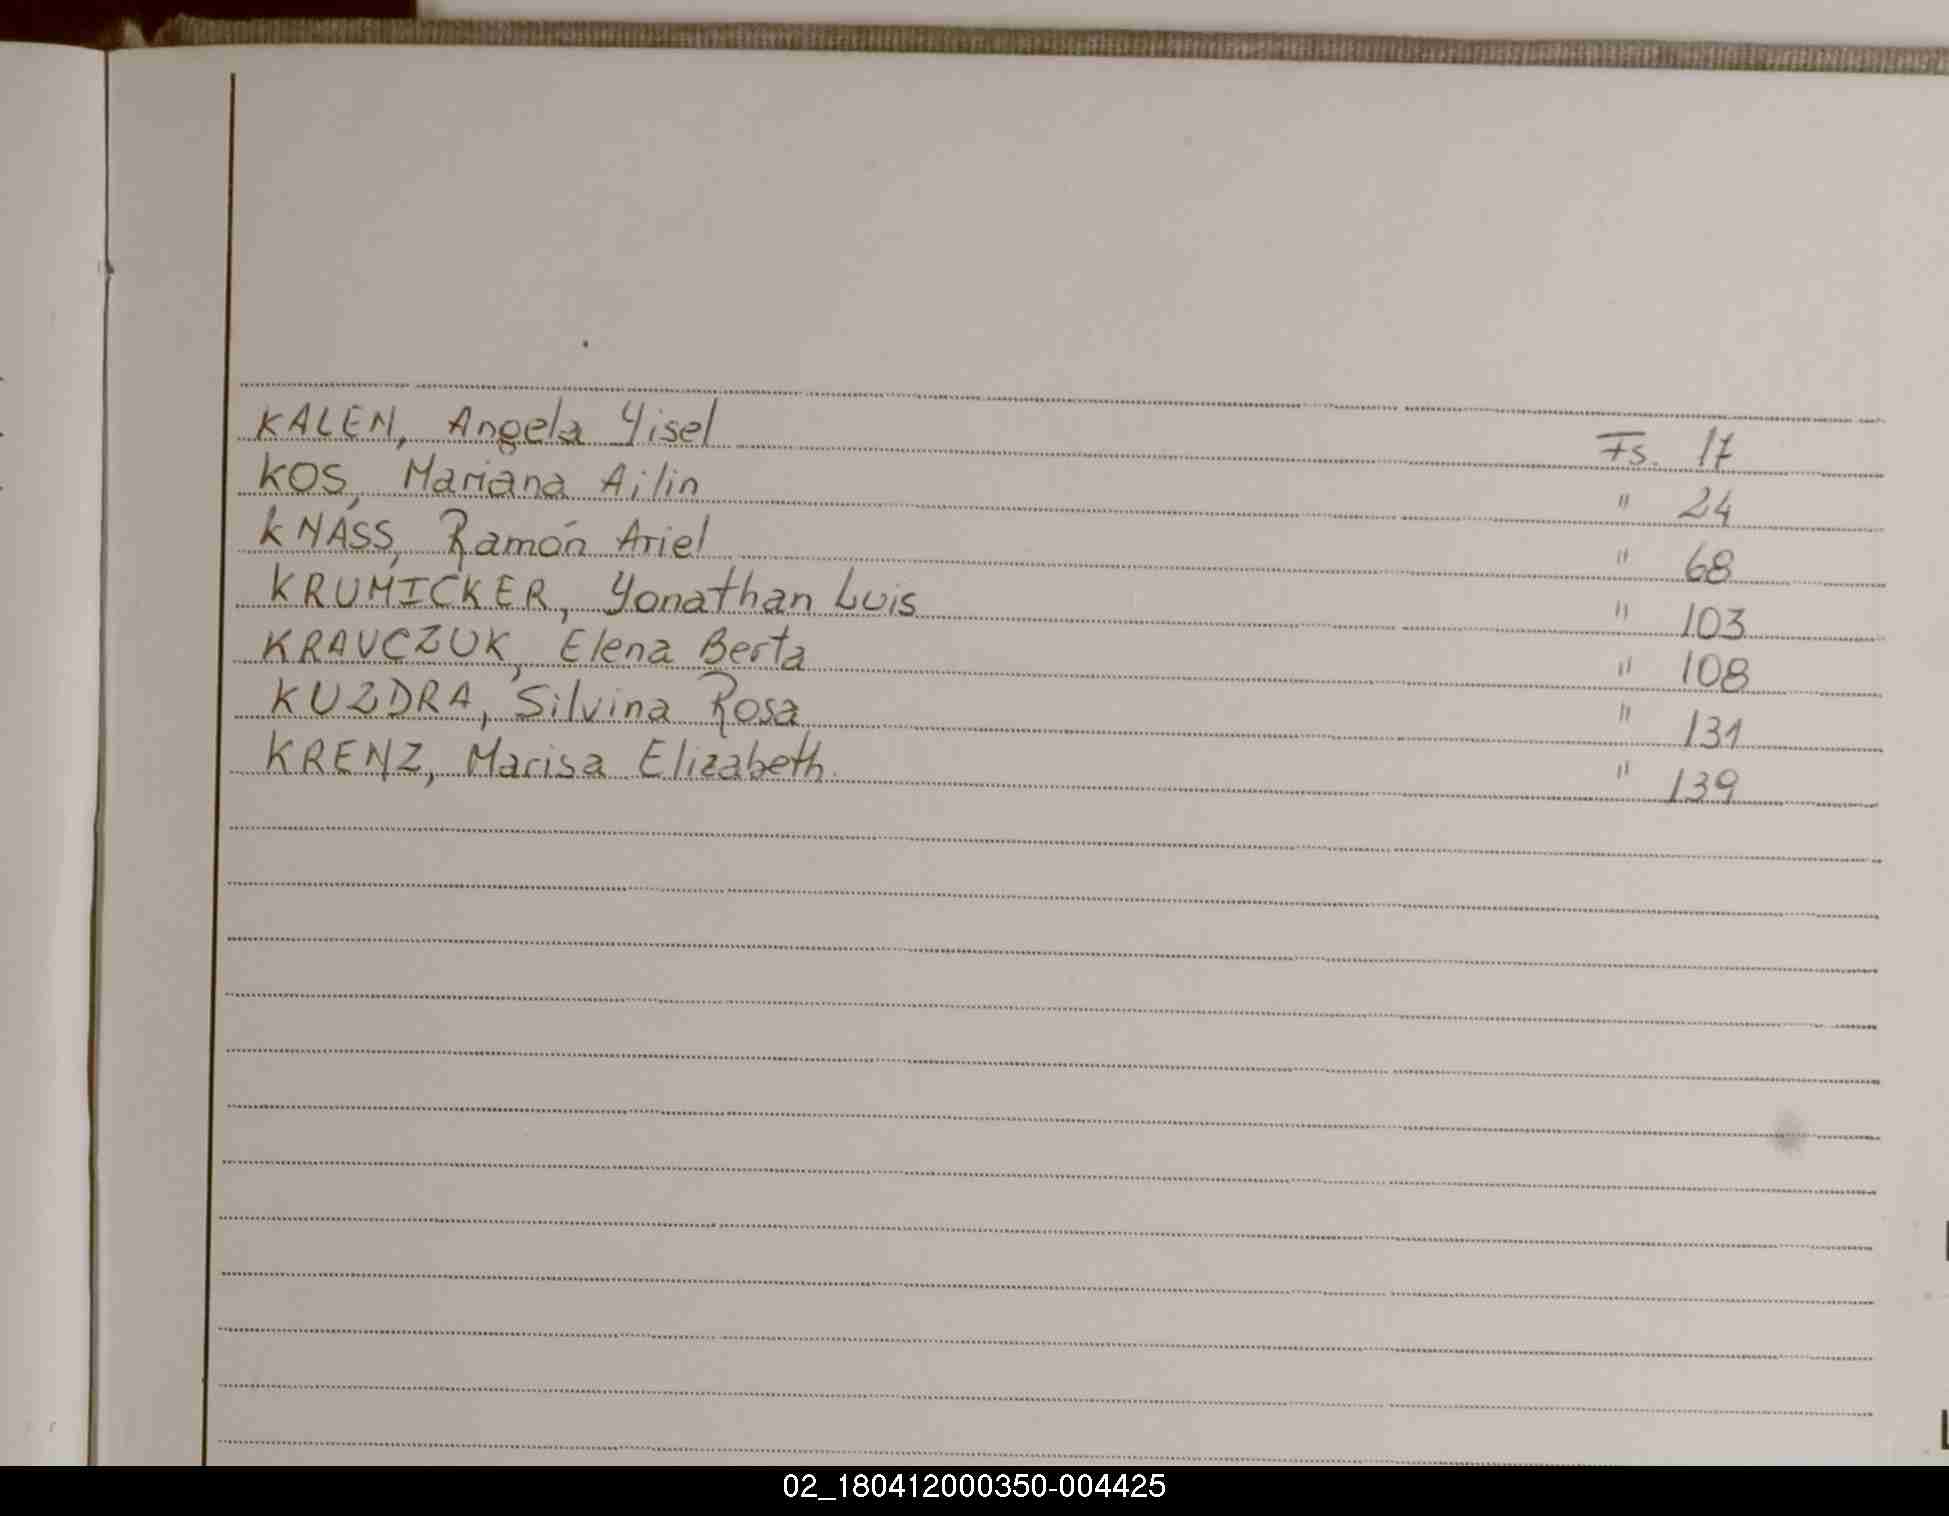 KALEN, Angela Yisel Fs. 17
KOS, Mariana Ailin " 24
KNASS, Ramón Ariel " 68
KRUMICKER, Yonathan Luis " 103
KRAVCZUK, Elena Berta " 108
KUZDRA, Silvina Rosa " 131
KRENZ, Marisa Elizabeth. " 139
02_180412000350-004425